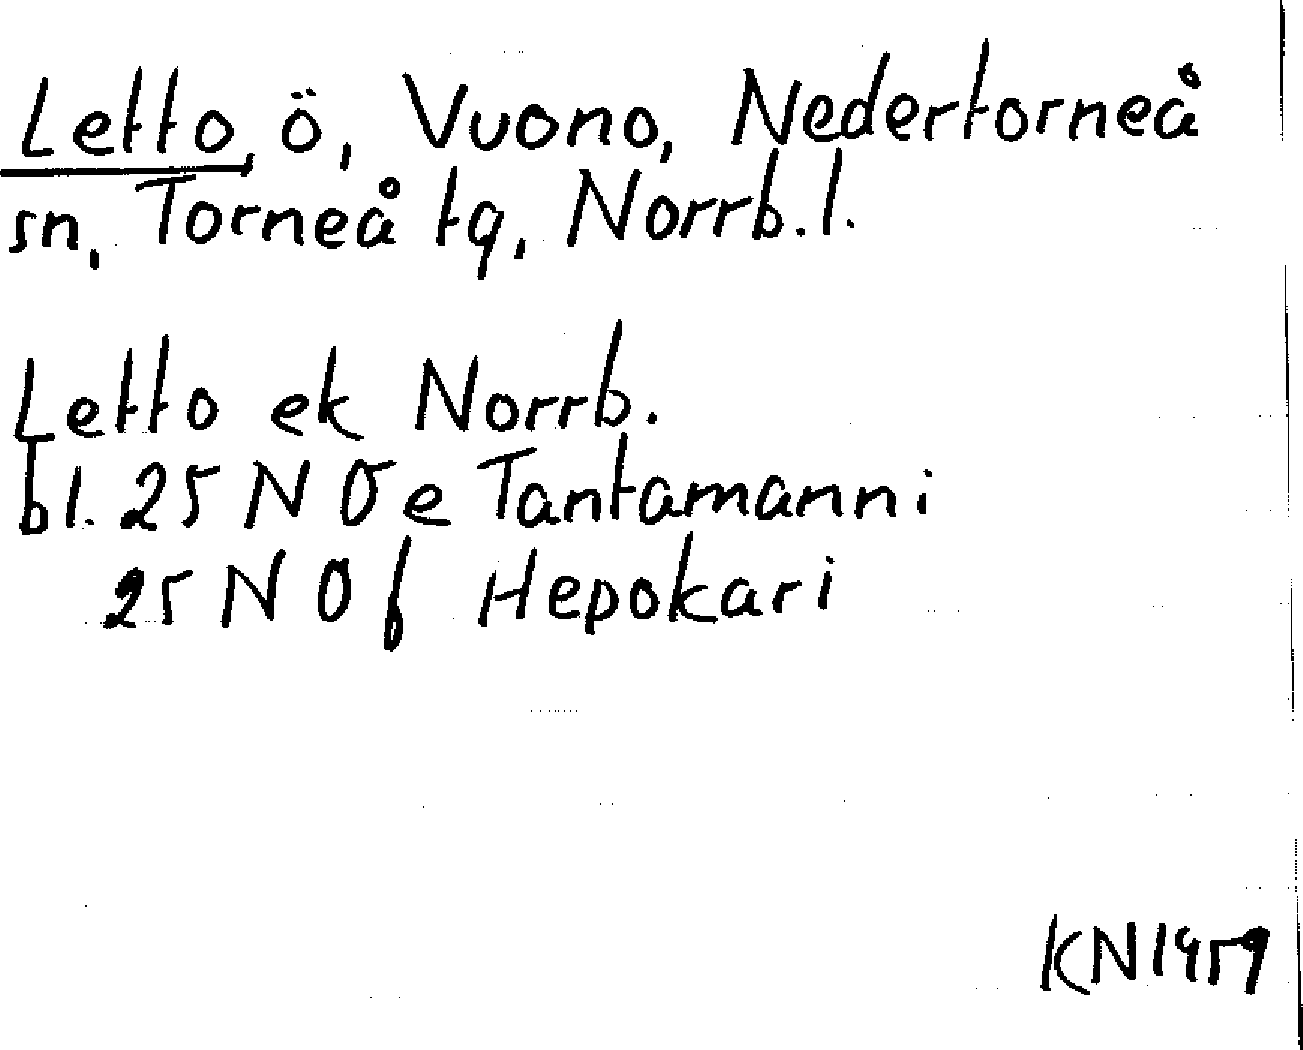 Letto, ö, Vuono, Nedertorneå
sn, Torneå tg, Norrb. l.
Letto ek Norrb.
bl. 25 N O e Tantamanni
25 N O f Hepokari
KN 1959